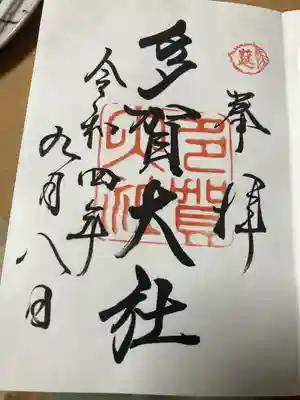 奉拝
多賀大社
令和四年
九月八日
多賀
大社